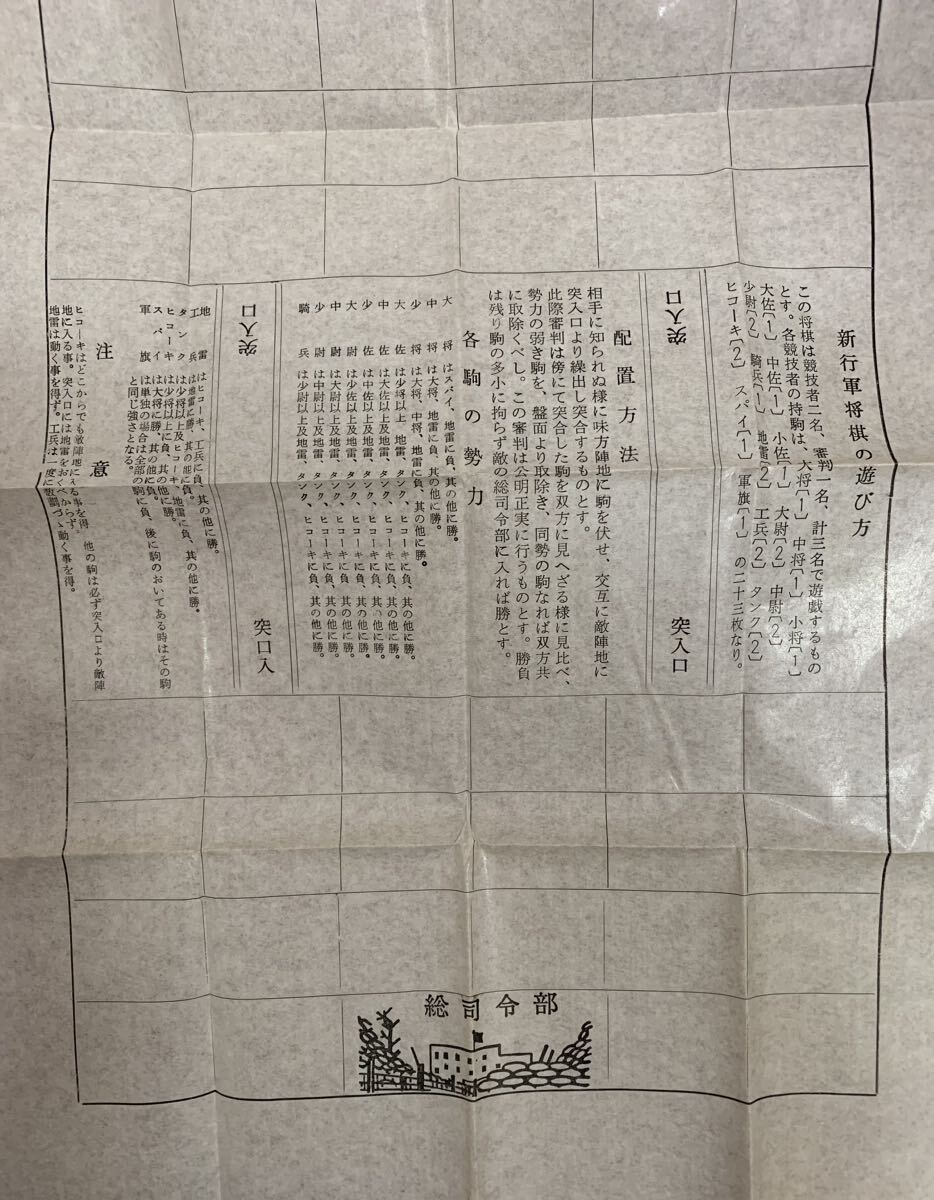 新行軍将棋の遊び方
この将棋は競技者二名、審判一名、計三名で遊戯するもの
とす。各競技者の持駒は、大将〔1〕 中将〔1〕 小将〔1〕
大佐〔1〕 中佐〔1〕 小佐〔1〕 大尉〔2〕 中尉〔2〕
少尉〔2〕 騎兵〔1〕 地雷〔2〕 工兵〔2〕 タンク〔2〕
ヒコーキ〔2〕 スパイ〔1〕 軍旗〔1〕 の二十三枚なり。
突入口
突入口
配置方法
相手に知られぬ様に味方陣地に駒を伏せ、交互に敵陣地に
突入口より繰出し突合するものとす。
此際審判は傍にて突合した駒を双方に見へざる様に見比べ、
勢力の弱き駒を、盤面より取除き、同勢の駒なれば双方共
に取除くべし。この審判は公明正実に行うものとす。勝負
は残り駒の多小に拘らず敵の総司令部に入れば勝とす。
各駒の勢力
大将 はスパイ、地雷に負、其の他に勝。
中将 は大将、地雷に負、其の他に勝。
少将 は大将、中将、地雷に負、其の他に勝。
大佐 は少将以上 地雷、タンク、ヒコーキに負、其の他に勝。
中佐 は大佐以上及地雷、タンク、ヒコーキに負、其の他に勝。
少佐 は中佐以上及地雷、タンク、ヒコーキに負、其の他に勝。
大尉 は少佐以上及地雷、タンク、ヒコーキに負、其の他に勝。
中尉 は大尉以上及地雷、タンク、ヒコーキに負、其の他に勝。
少尉 は中尉以上及地雷、タンク、ヒコーキに負、其の他に勝。
騎兵 は少尉以上及地雷、タンク、ヒコーキに負、其の他に勝。
突入口
突口入
地雷 はヒコーキ、工兵に負、其の他に勝。
工兵 は地雷に勝、其の他に負。
タンク は少将以上及ヒコーキ、地雷に負、其の他に勝。
ヒコーキ は少将以上に負、其の他に勝。
スパイ は大将に勝、其の他に負。
軍旗 は単独の場合は全部の駒に負、後に駒のおいてある時はその駒
と同じ強さとなる。
注意
ヒコーキはどこからでも敵陣地に入る事を得。 他の駒は必ず突入口より敵陣
地に入る事。突入口には地雷をおくべからず。
地雷は動く事を得ず。工兵は一度に数間づゝ動く事を得。
総司令部